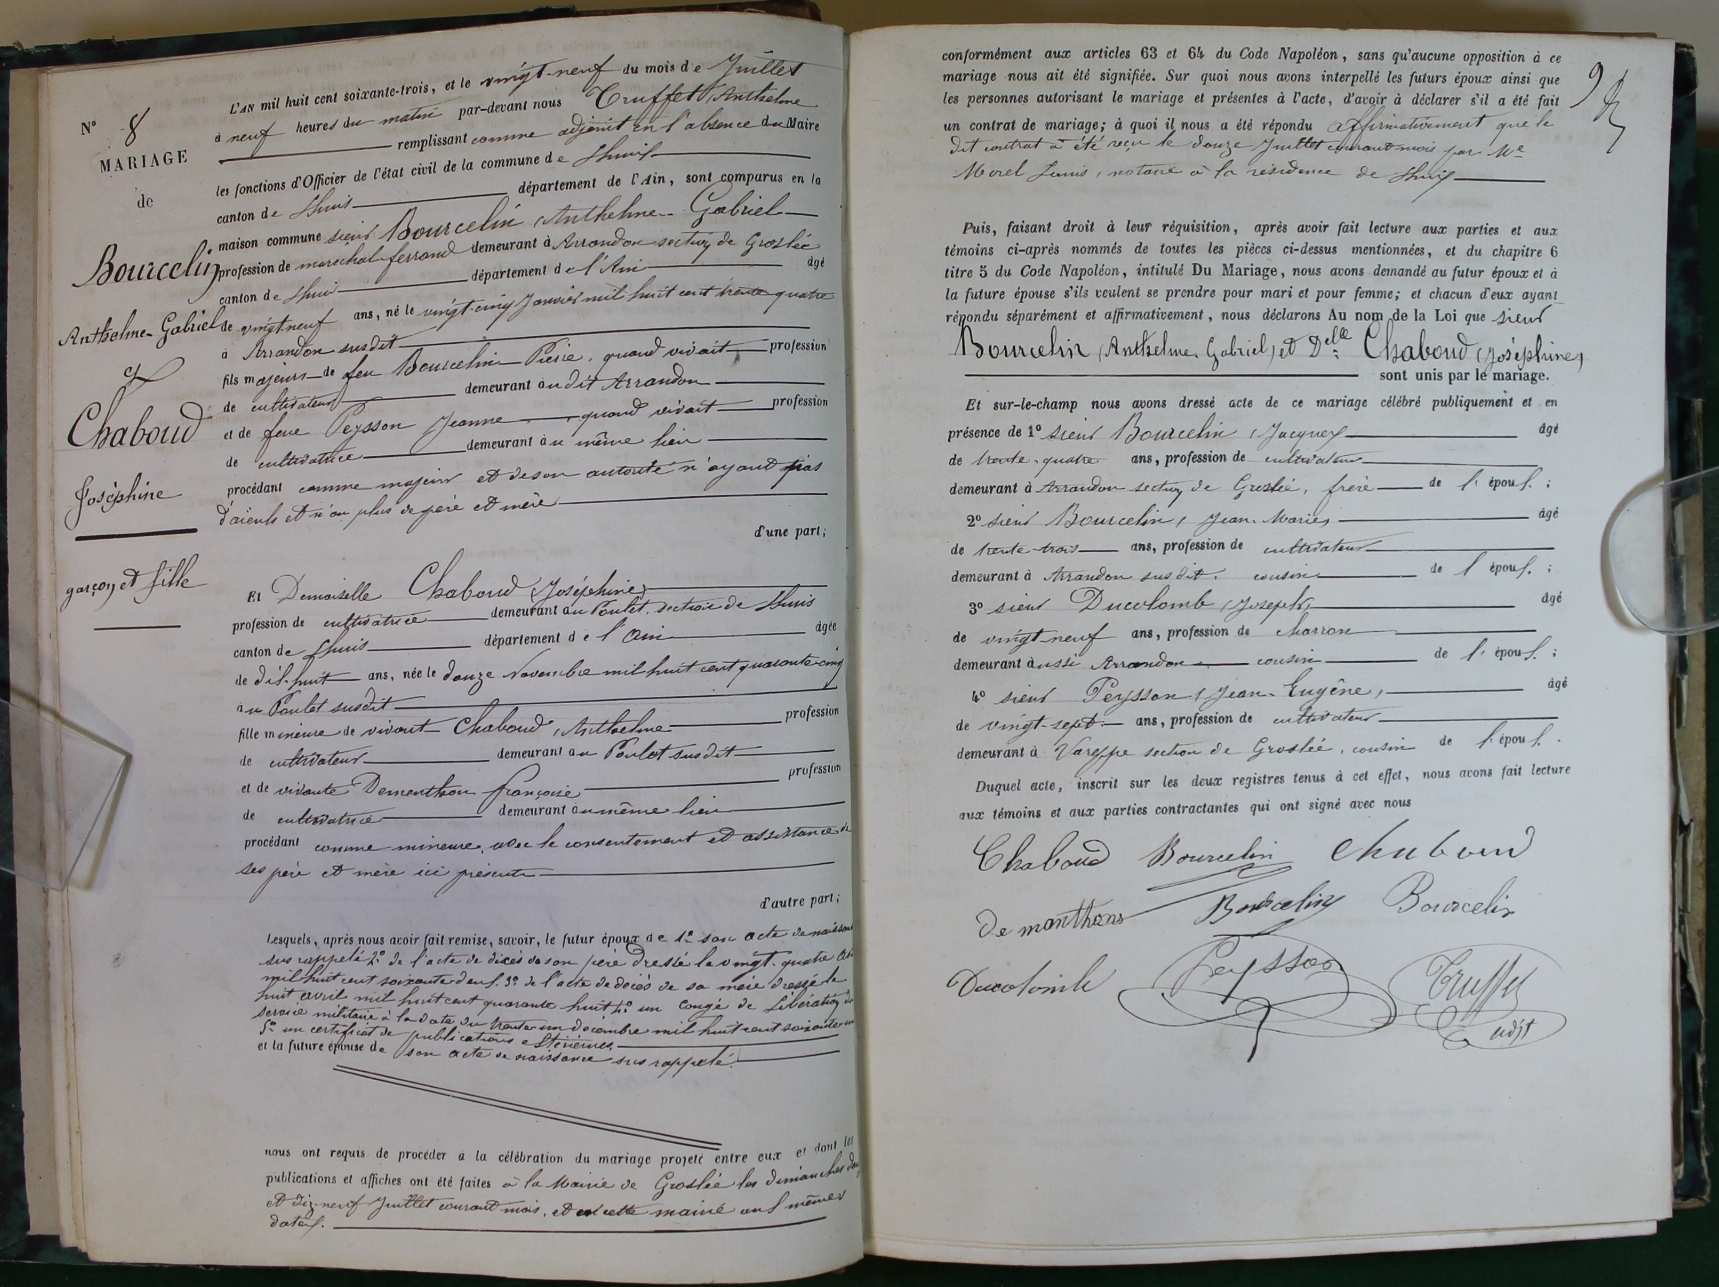 N° 8
MARIAGE
de
Bourcelin
Anthelme-Gabriel
et
Chaboud
Joséphine
garçon et fille
L'AN mil huit cent soixante-trois, et le vingt-neuf du mois de Juillet
à neuf heures du matin par-devant nous Truffet, Anthelme
remplissant comme adjoint en l'absence du Maire
les fonctions d'Officier de l'état civil de la commune de Lhuis
canton de Lhuis département de l'Ain, sont comparus en la
maison commune sieur Bourcelin, Anthelme-Gabriel
profession de marechal-ferrand demeurant à Arrandon section de Groslée
canton de Lhuis département de l'Ain âgé
de vingt neuf ans, né le vingt-cinq Janvier mil huit cent trente quatre
à Arrandon susdit
fils majeur de feu Bourcelin Pierre, quand vivait profession
de cultivateur demeurant au dit Arrandon
et de feue Peysson Jeanne quand vivait profession
de cultivatrice demeurant au même lieu
procédant comme majeur et de son autorité n'ayant pas
d'aïeuls et n'au plus de père et mère
d'une part;
Et Demoiselle Chaboud (Joséphine)
profession de cultivatrice demeurant au Poulet, section de Lhuis
canton de Lhuis département de l'Ain âgée
de dix-huit ans, née le douze Novembre mil huit cent quarante-cinq
au Poulet susdit
fille mineure de vivant Chaboud, Anthelme profession
de cultivateur demeurant au Poulet susdit
et de vivante Dementhon françoise profession
de cultivatrice demeurant au même lieu
procédant comme mineure, avec le consentement et assistance de
ses père et mère ici présents
d'autre part;
Lesquels, après nous avoir fait remise, savoir, le futur époux de 1° son acte de naissance
sus rappelé 2° de l'acte de décès de son père dressé le vingt-quatre
mil huit cent soixante deux 3° de l'acte de décès de sa mère dressé le
huit avril mil huit cent quarante huit 4° un Congé de Libération du
service militaire à la date du trente un decembre mil huit cent soixante un
5° un certificat de publications
et la future épouse de son acte de naissance sus rappelé.
nous ont requis de procéder à la célébration du mariage projeté entre eux et dont les
publications et affiches ont été faites à la Mairie de Groslée les dimanches douze
et dix-neuf Juillet courant mois, et en cette mairie aux mêmes
dates.
conformément aux articles 63 et 64 du Code Napoléon, sans qu'aucune opposition à ce
mariage nous ait été signifiée. Sur quoi nous avons interpellé les futurs époux ainsi que
les personnes autorisant le mariage et présentes à l'acte, d'avoir à déclarer s'il a été fait
un contrat de mariage; à quoi il nous a été répondu affirmativement que le
dit contrat a été reçu le douze Juillet courant mois par Me
Morel Louis, notaire à la résidence de Lhuis
Puis, faisant droit à leur réquisition, après avoir fait lecture aux parties et aux
témoins ci-après nommés de toutes les pièces ci-dessus mentionnées, et du chapitre 6
titre 5 du Code Napoléon, intitulé Du Mariage, nous avons demandé au futur époux et à
la future épouse s'ils veulent se prendre pour mari et pour femme; et chacun d'eux ayant
répondu séparément et affirmativement, nous déclarons Au nom de la Loi que sieur
Bourcelin (Anthelme Gabriel) et Delle Chaboud (Joséphine)
sont unis par le mariage.
Et sur-le-champ nous avons dressé acte de ce mariage célébré publiquement et en
présence de 1° sieur Bourcelin, Jacques âgé
de trente-quatre ans, profession de cultivateur
demeurant à Arrandon section de Groslée, frère de l'époux;
2° sieur Bourcelin, Jean-Marie, âgé
de trente-trois ans, profession de cultivateur
demeurant à Arrandon susdit. cousin de l'époux;
3° sieur Ducolomb, Joseph, âgé
de vingt-neuf ans, profession de charron
demeurant aussi Arrandon cousin de l'époux;
4° sieur Peysson, Jean-Eugêne, âgé
de vingt-sept ans, profession de cultivateur
demeurant à Vareppe section de Groslée, cousin de l'époux.
Duquel acte, inscrit sur les deux registres tenus à cet effet, nous avons fait lecture
aux témoins et aux parties contractantes qui ont signé avec nous
Chaboud Bourcelin Chaboud
De manthons Bourcelin Bourcelin
Ducolomb Peysson Truffet
adjt